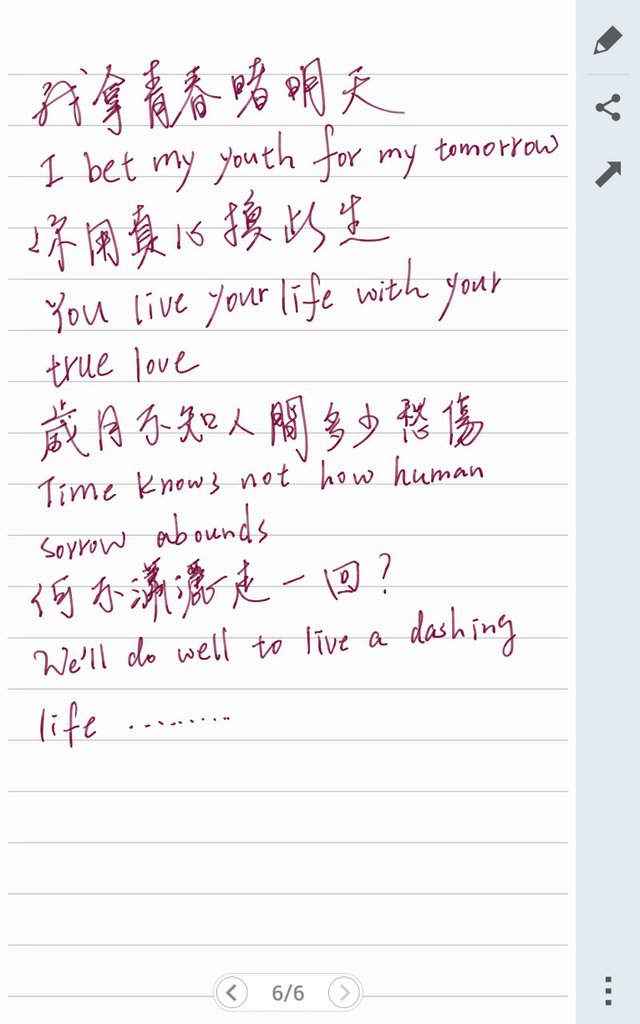 我拿青春賭明天
I bet my youth for my tomorrow
你用真心換此生
You live your life with your
true love
歲月不知人間多少愁傷
Time knows not how human
sorrow abounds
何不瀟灑走一回?
We'll do well to live a dashing
life .........
6/6